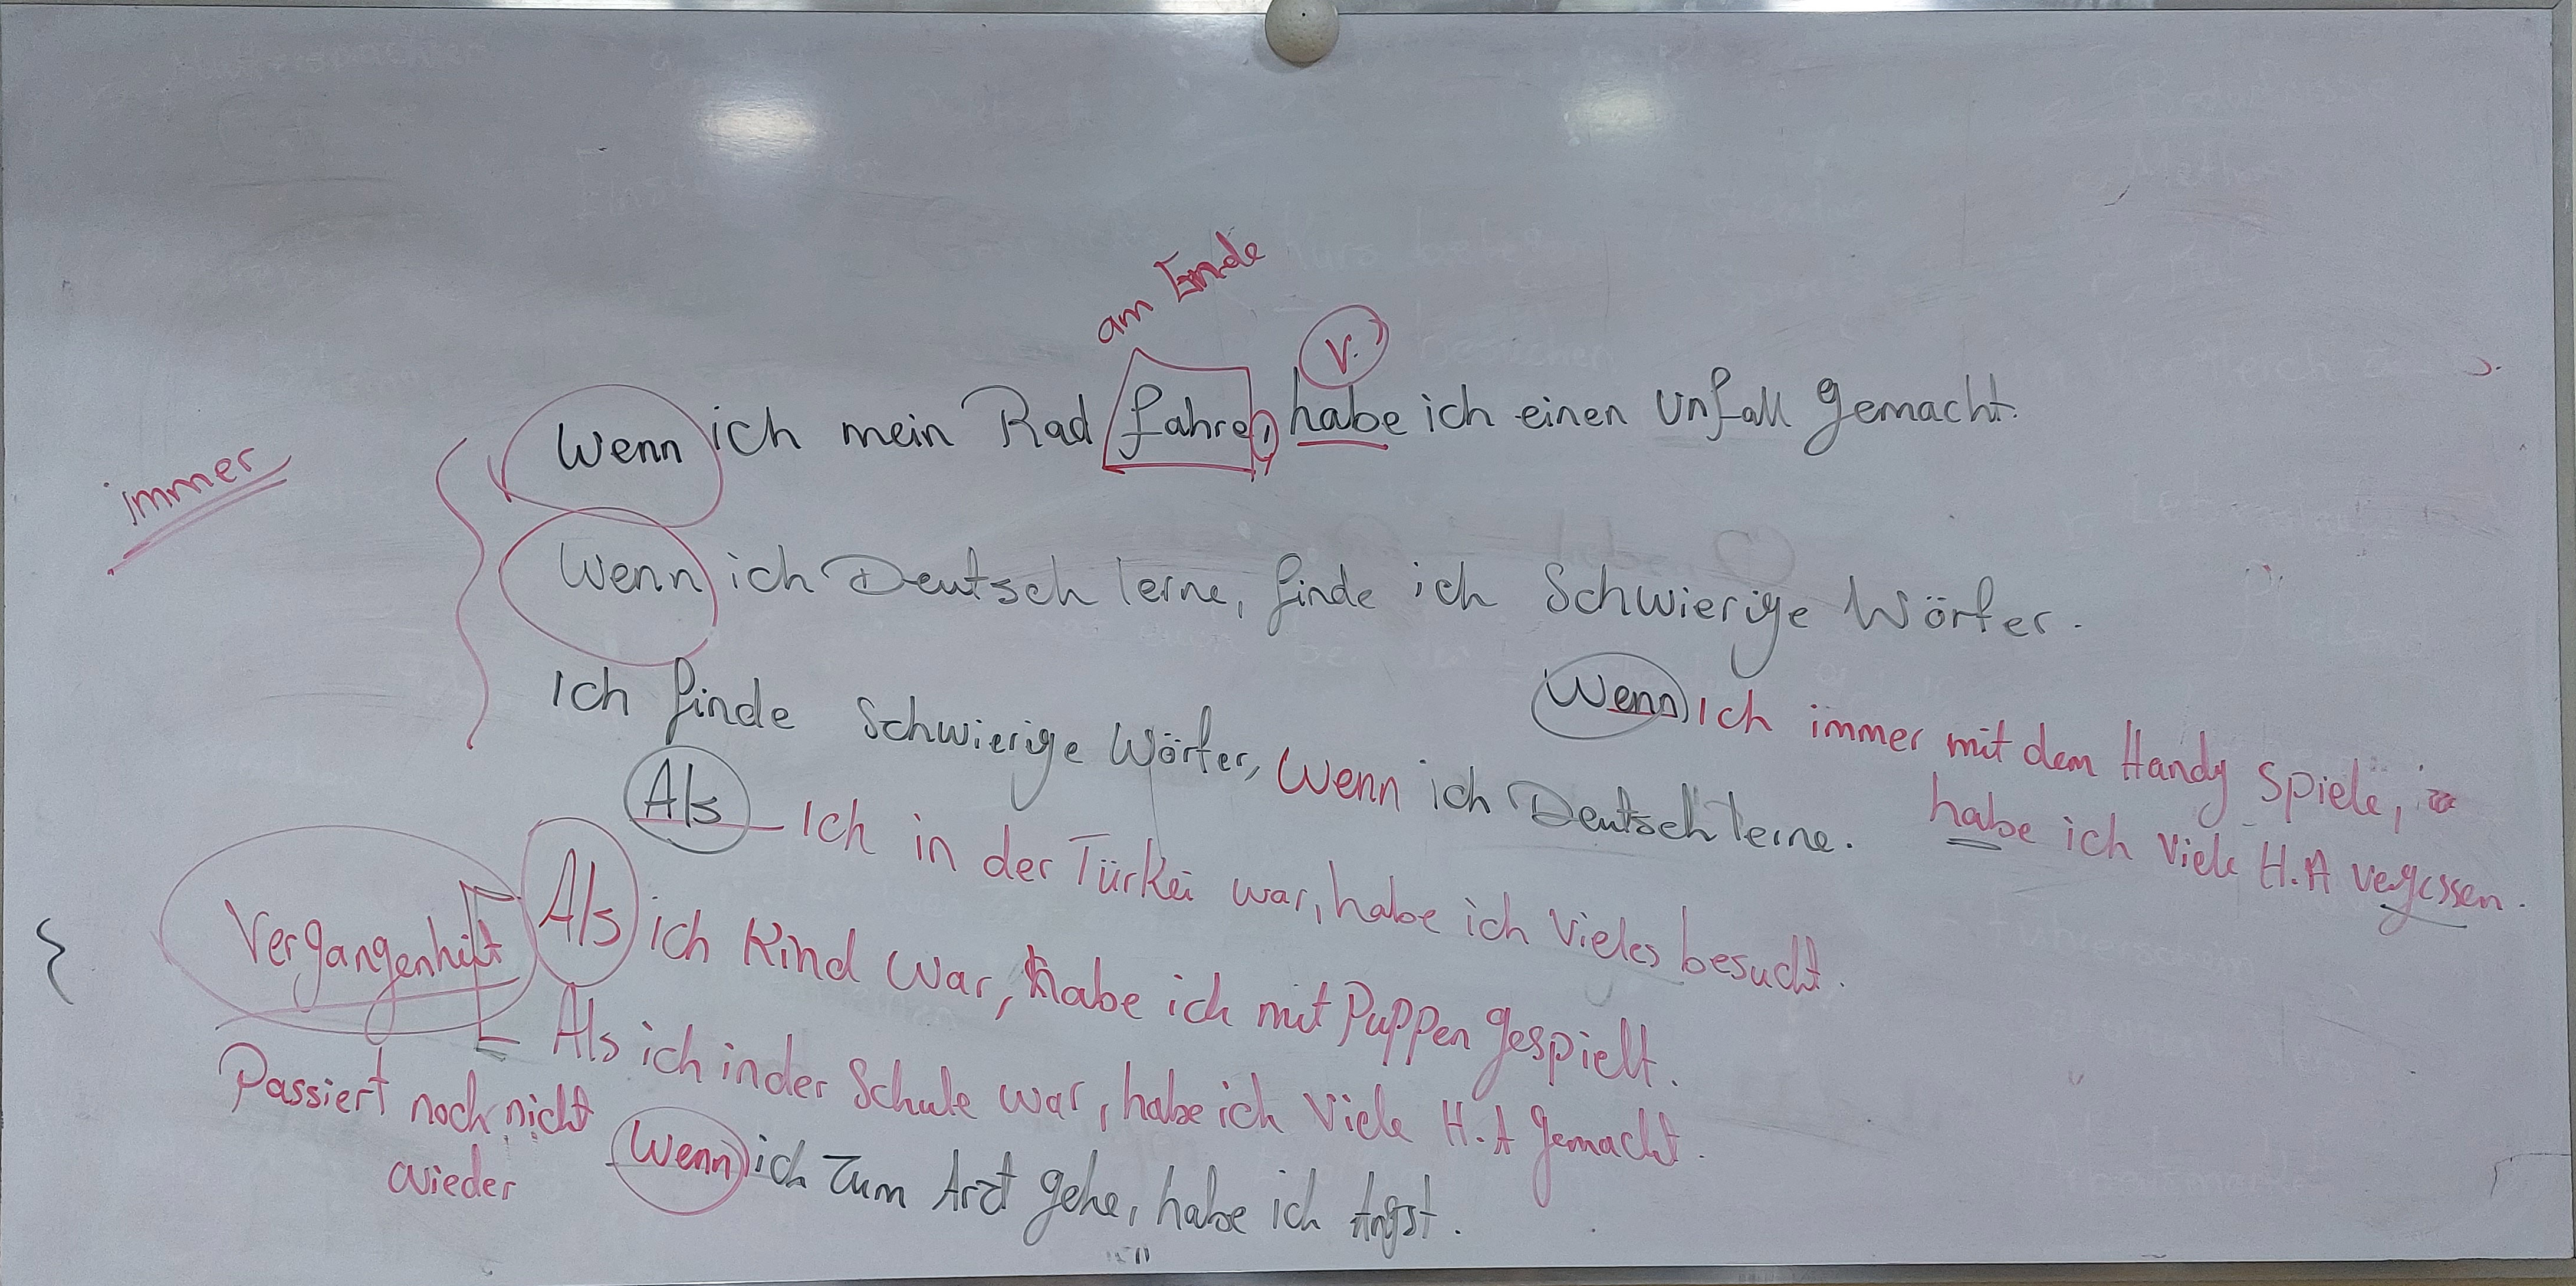 am Ende
V.
Wenn ich mein Rad fahre, habe ich einen Unfall gemacht.
immer
Wenn ich Deutsch lerne, finde ich Schwierige Wörter.
Ich finde Schwierige Wörter, Wenn ich Deutsch lerne.
Wenn ich immer mit dem Handy Spiele,
habe ich Viele H.A vergessen.
Als Ich in der Türkei war, habe ich Vieles besucht.
Vergangenheit
Als ich Kind war, habe ich mit Puppen gespielt.
Als ich in der Schule war, habe ich Viele H.A gemacht.
Passiert noch nicht
wieder
Wenn ich Zum Arzt gehe, habe ich Angst.